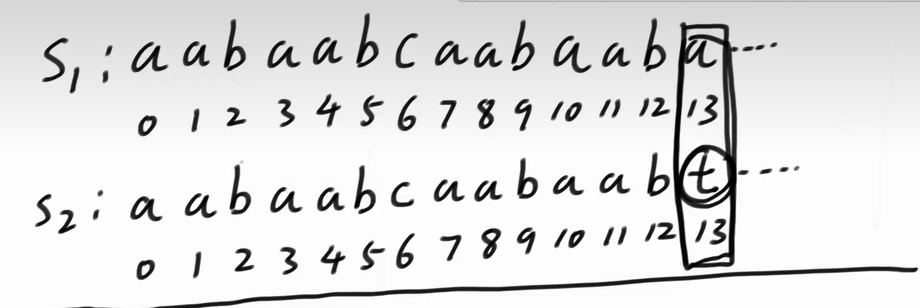 S₁: a a b a a b c a a b a a b a ....
0 1 2 3 4 5 6 7 8 9 10 11 12 13
S₂: a a b a a b c a a b a a b t ....
0 1 2 3 4 5 6 7 8 9 10 11 12 13